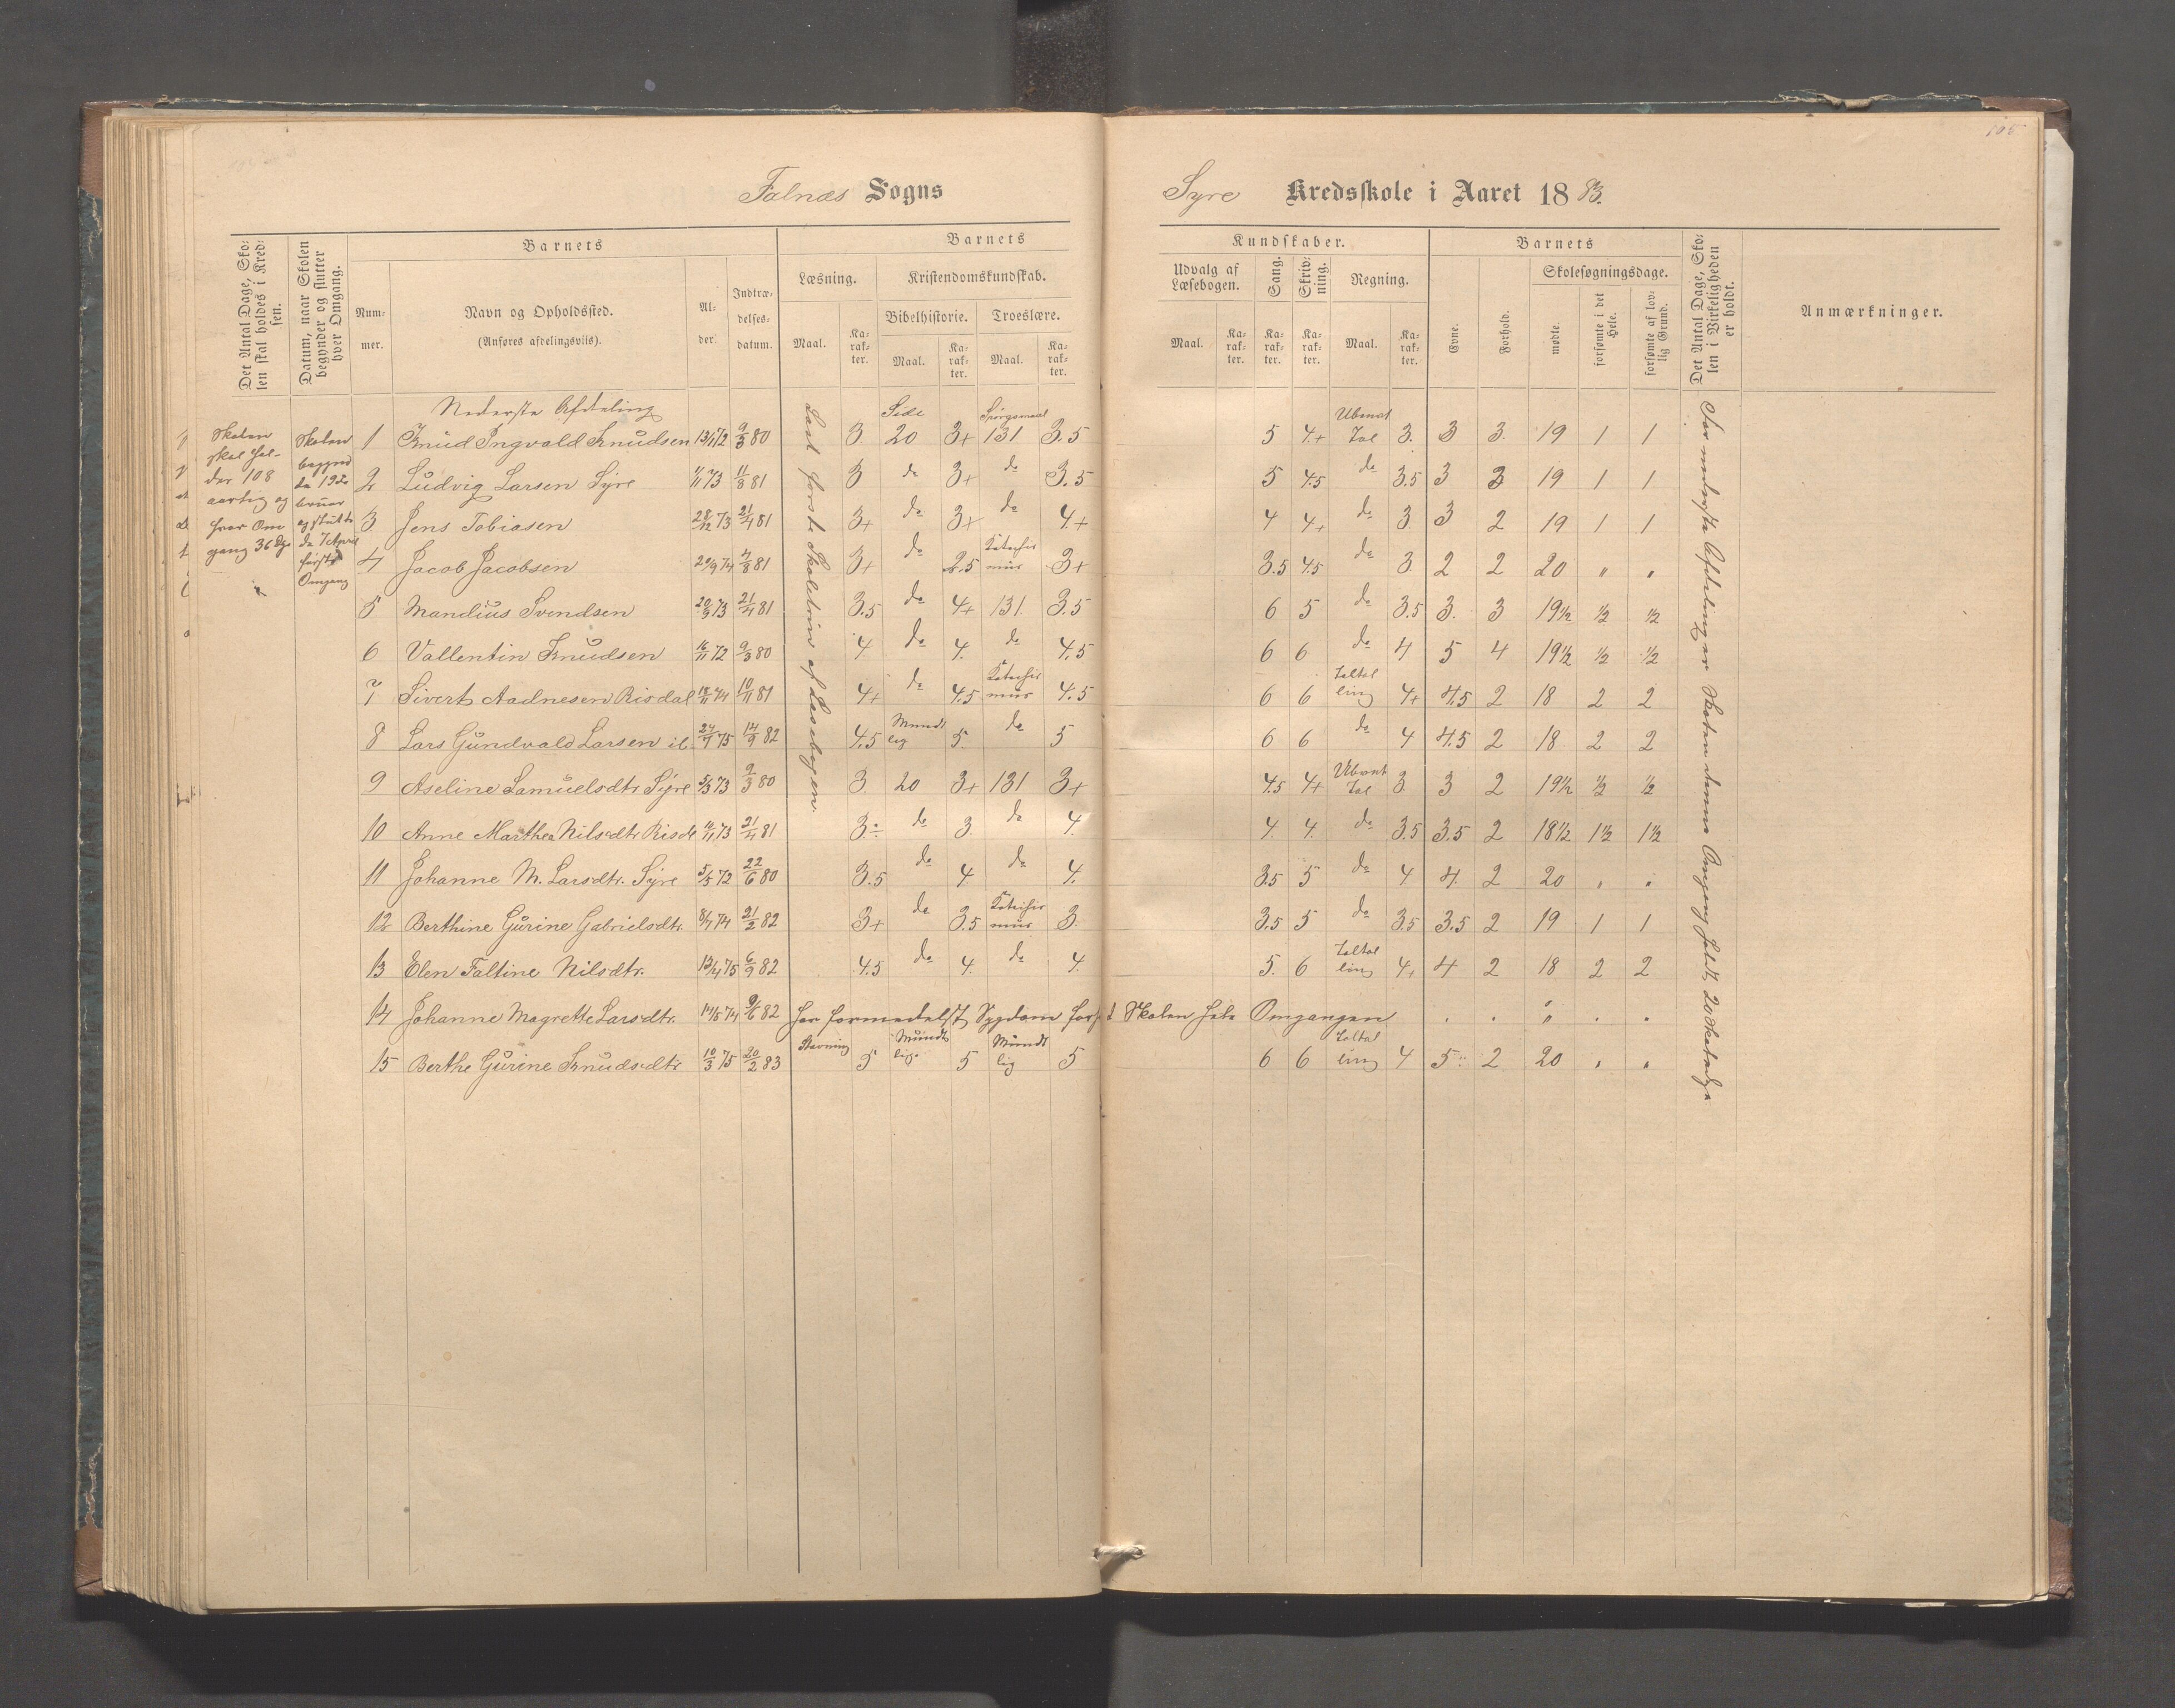 105
Falnæs Sogns
Syre Kredsskole i Aaret 1883.
Det Antal Dage, Skolen skal holdes i Kredsen.
Datum, naar Skolen begynder og slutter hver Omgang.
Barnets
Nummer.
Navn og Opholdssted.
(Anføres afdelingsvils).
Alder.
Indtrædelsesdatum.
Barnets
Læsning.
Maal.
Karakter.
Kristendomskundskab.
Bibelhistorie.
Maal.
Karakter.
Troeslære.
Maal.
Karakter.
Kundskaber.
Udvalg af Læsebogen.
Maal.
Karakter.
Sang.
Karakter.
Skrivning.
Karakter.
Regning.
Maal.
Karakter.
Barnets
Evne.
Forhold.
Skolesøgningsdage.
mødte.
forsømte i det Hele.
forsømte af lovlig Grund.
Det Antal Dage, Skolen i Virkeligheden er holdt.
Anmærkninger.
Skolen
skal hol-
des 108
aarlig og
hver Om
gang 36 Dge
Skolen
begynd
te 19de
bruar
og slutte
de 7 April
første
Omgang
Nederste Afdeling
Læst første Skoletrin af Læsebogen
Side
Spørgsmaal
1 Knud Ingvald Knudsen 13/11 72 9/3 80 3 20 3+ 131 3.5 5 4+ Ubenæt Tal 3. 3 3. 19 1 1
2 Ludvig Larsen Syre 1/11 73 11/8 81 3 do 3+ do 3.5 5 4.5 do 3.5 3 3 19 1 1
3 Jens Tobiasen 28/12 73 21/4 81 3+ do 3+ do 4+ 4 4+ do 3 3 2 19 1 1
4 Jacob Jacobsen 29/9 74 4/8 81 3+ do 2.5 Katechis mus 3+ 3.5 4.5 do 3 2 2 20 " "
5 Mandius Svendsen 20/9 73 21/4 81 3.5 do 4+ 131 3.5 6 5 do 3.5 3. 3 19½ ½ ½
6 Vallentin Knudsen 16/11 72 9/3 80 4 do 4. do 4.5 6 6 do 4 5 4 19½ ½ ½
7 Sivert Aadnesen Risdal 18/11 74 10/11 81 4+ do 4.5 Katechis mus 4.5 6 6 Taltal ling 4+ 4.5 2 18 2 2
8 Lars Gundvald Larsen ib 24/1 75 14/9 82 4.5 Mundt lig 5. do 5 6 6 do 4 4.5 2 18 2 2
9 Aseline Samuelsdtr Syre 5/3 73 9/3 80 3. 20 3+ 131 3+ 4.5 4+ Ubenæt Tal 3 3 2 19½ ½ ½
10 Anne Marthea Nilsdtr Risdl 16/11 73 21/4 81 3÷ do 3. do 4. 4. 4. do 3.5 3.5 2 18½ 1½ 1½
11 Johanne M. Larsdtr. Syre 5/5 72 22/6 80 3.5 do 4 do 4. 3.5 5 do 4 4. 2 20 " "
12 Berthine Gurine Gabrielsdtr. 8/4 74 21/2 82 3+ do 3.5 Katechis mus 3. 3.5 5 do 3.5 3.5 2 19 1 1
13 Elen Faltine Nilsdtr. 13/4 75 6/9 82 4.5 do 4. do 4. 5. 6 Taltal ling 4+ 4 2 18 2 2
14 Johanne Magrette Larsdtr. 14/5 74 9/6 82 har formedelst Sygdom forsømt Skolen hele Omgangen . . " . .
15 Berthe Gurine Knudsdtr 10/3 75 20/2 83 Stavning 5 Mundt lig. 5 Mundt lig 5 6 6 Taltal ling 4 5 2 20 " "
For nederste Afdeling er Skolen denne Omgang holdt 20 Skoledage